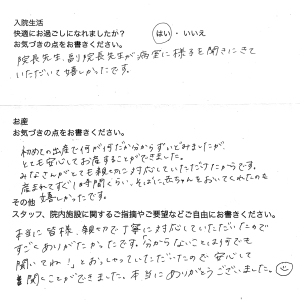 入院生活
快適にお過ごしになれましたか？ はい・いいえ
お気づきの点をお書きください。
院長先生、副院長先生が病室に様子を聞きにきて
いただいて嬉しかったです。
お産
お気づきの点をお書きください。
初めての出産で何が何だか分からずいどみましたが、
とても安心してお産することができました。
みなさんがとても親切に対応していただけたからです。
産まれてすぐ1時間くらい、そばに赤ちゃんをおいてくれたのも
嬉しかったです。
その他
スタッフ、院内施設に関するご指摘やご要望などご自由にお書きください。
本当に皆様、親切で丁寧に対応していただいたので
すごくありがたかったです。「分からないことは何でも
聞いてね！」とおっしゃっていただいたので安心して
聞くことができました。本当にありがとうございました。